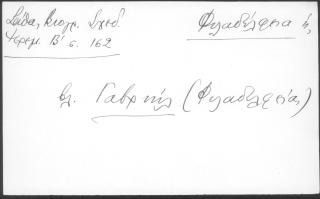 Σάθα, Βιογρ. Σχεδ.
Ἱερεμ. Β΄ σ. 162
Φιλαδέλφεια ἡ,
βλ. Γαβριήλ (Φιλαδελφείας)